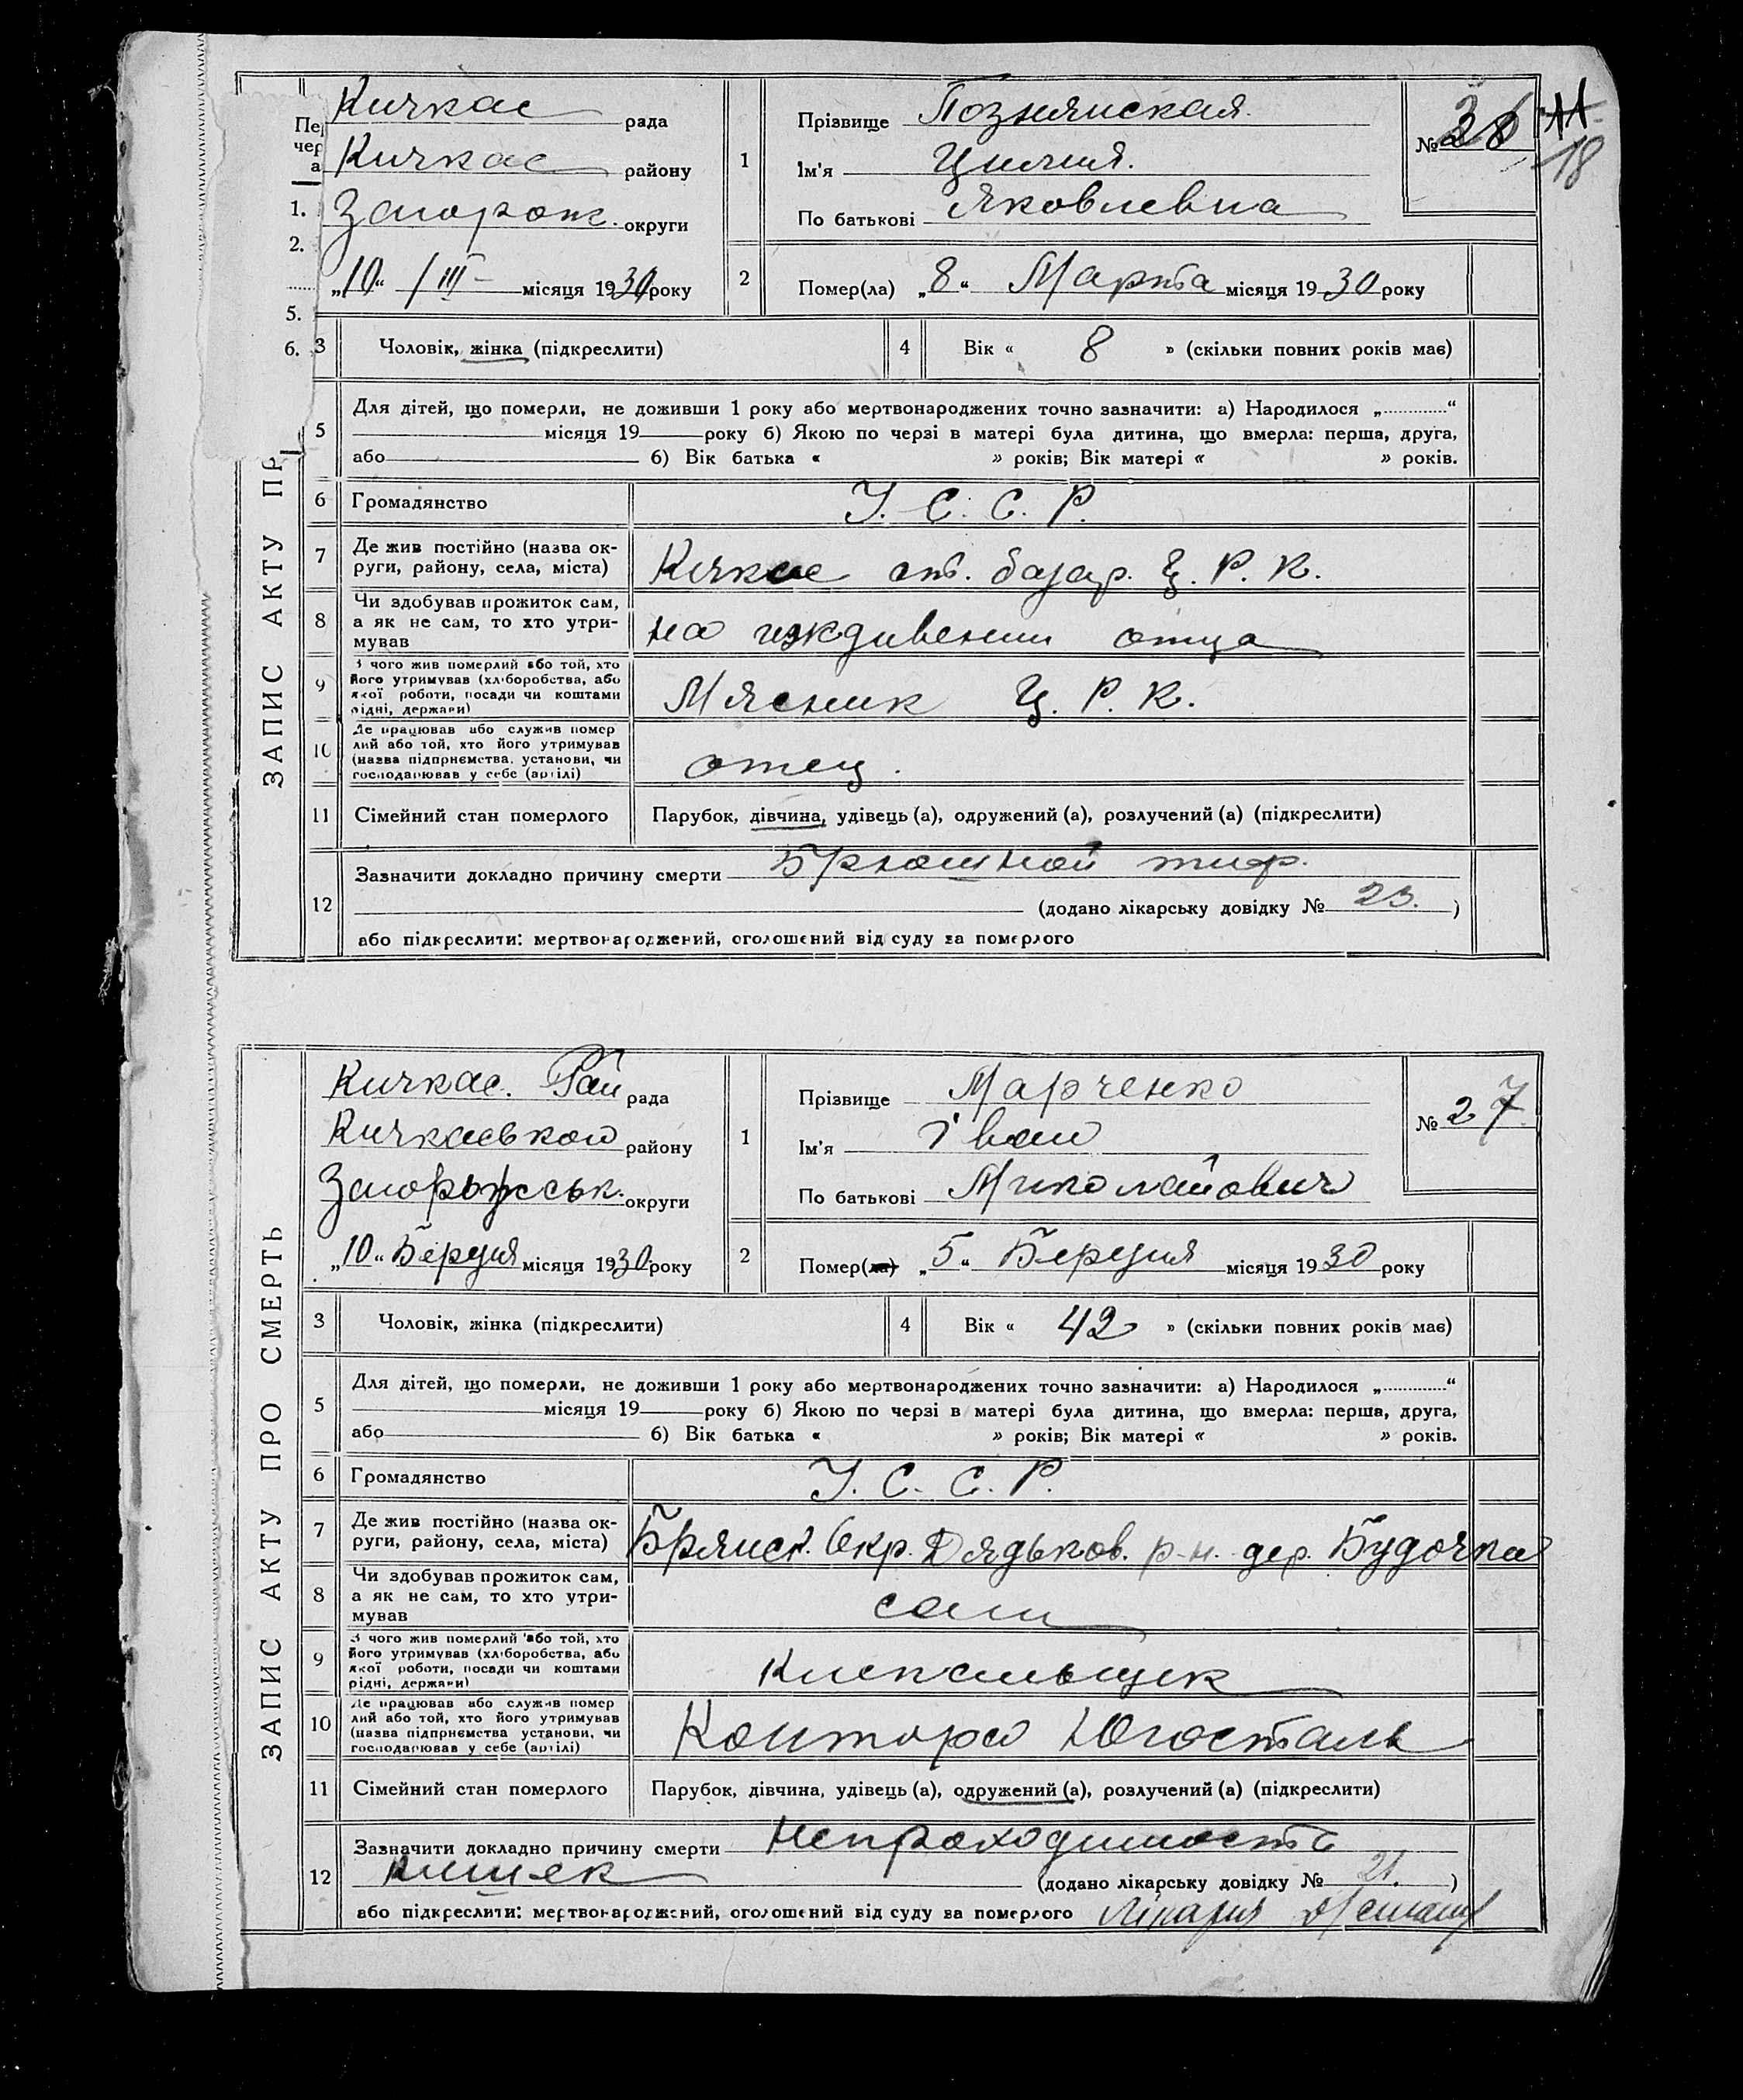 Кичкас рада
Кичкас району
Запорож. округи
„10“ /III- місяця 1930 року
1
Прізвище Познянская.
Ім'я Цилия.
По батькові Яковлевна
№ 26
11
18
2
Помер(ла) „8“ Марта місяця 1930 року
Пер
чер
а
1.
2.
5.
6.
ЗАПИС АКТУ ПР
3
Чоловік, жінка (підкреслити)
4
Вік « 8 » (скільки повних років має)
5
Для дітей, що померли, не доживши 1 року або мертвонароджених точно зазначити: а) Народилося „............“
місяця 19 року б) Якою по черзі в матері була дитина, що вмерла: перша, друга,
або б) Вік батька « » років; Вік матері « » років.
6
Громадянство
У. С. С. Р.
7
Де жив постійно (назва ок-
руги, району, села, міста)
Кичкас ст. базар. Ц. Р. К.
8
Чи здобував прожиток сам,
а як не сам, то хто утри-
мував
на иждивении отца
9
З чого жив померлий або той, хто
його утримував (хліборобства, або
якої роботи, посади чи коштами
рідні, держави)
Мясник Ц. Р. К.
10
Де працював або служив помер
лий або той, хто його утримував
(назва підприємства, установи, чи
господарював у себе (артілі)
отец.
11
Сімейний стан померлого
Парубок, дівчина, удівець (а), одружений (а), розлучений (а) (підкреслити)
12
Зазначити докладно причину смерти Брюшной тиф.
(додано лікарську довідку № 23. )
або підкреслити: мертвонароджений, оголошений від суду за померлого
ЗАПИС АКТУ ПРО СМЕРТЬ
Кичкас. Рай рада
Кичкаськой району
Запоріжськ. округи
„10“ Березня місяця 1930 року
1
Прізвище Марченко
Ім'я Іван
По батькові Миколайович
№ 27
2
Помер(ла) „5“ Березня місяця 1930 року
3
Чоловік, жінка (підкреслити)
4
Вік « 42 » (скільки повних років має)
5
Для дітей, що померли, не доживши 1 року або мертвонароджених точно зазначити: а) Народилося „............“
місяця 19 року б) Якою по черзі в матері була дитина, що вмерла: перша, друга,
або б) Вік батька « » років; Вік матері « » років.
6
Громадянство
У. С. С. Р.
7
Де жив постійно (назва ок-
руги, району, села, міста)
Брянск. Окр. Дядьков. р-н. дер. Будочка
8
Чи здобував прожиток сам,
а як не сам, то хто утри-
мував
сам
9
З чого жив померлий або той, хто
його утримував (хліборобства, або
якої роботи, посади чи коштами
рідні, держави)
Клепальщик
10
Де працював або служив помер
лий або той, хто його утримував
(назва підприємства установи, чи
господарював у себе (артілі)
Контора Югосталь
11
Сімейний стан померлого
Парубок, дівчина, удівець (а), одружений (а), розлучений (а) (підкреслити)
12
Зазначити докладно причину смерти Непроходимость
кишек (додано лікарську довідку № 21. )
або підкреслити: мертвонароджений, оголошений від суду за померлого